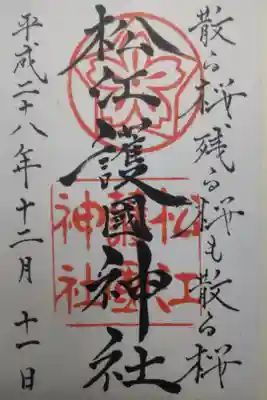 散る桜残る桜も散る桜
松江護國神社
松江
護國
神社
平成二十八年十二月十一日